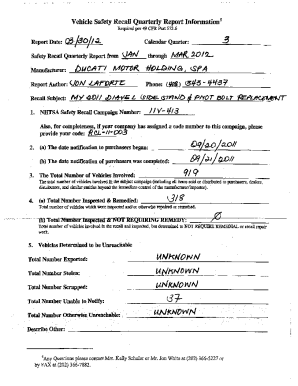 Vehicle Safety Recall Quarterly Report Information¹
Required per 49 CFR Part 573.6
Report Date: 03/30/12 Calendar Quarter: 3
Safety Recall Quarterly Report from JAN through MAR 2012
Manufacturer: DUCATI MOTOR HOLDING, SPA
Report Author: JON LAFORTE Phone: (408) 343-4437
Recall Subject: MY 2011 DIAVEL SIDE STAND & PIVOT BOLT REPLACEMENT
1. NHTSA Safety Recall Campaign Number: 11V-413
Also, for completeness, if your company has assigned a code number to this campaign, please
provide your code: RCL-11-003
2. (a) The date notification to purchasers began: 09/20/2011
(b) The date notification of purchasers was completed: 09/21/2011
3. The Total Number of Vehicles Involved: 919
The total number of vehicles involved in the subject campaign (including all items sold or distributed to purchasers, dealers,
distributors, and similar entities beyond the immediate control of the manufacturer/importer).
4. (a) Total Number Inspected & Remedied: 318
Total number of vehicles which were inspected and/or otherwise repaired or remedied.
(b) Total Number Inspected & NOT REQUIRING REMEDY: Ø
Total number of vehicles involved in the recall and inspected, but determined to NOT REQUIRE REMEDIAL or recall repair
work.
5. Vehicles Determined to be Unreachable
Total Number Exported: UNKNOWN
Total Number Stolen: UNKNOWN
Total Number Scrapped: UNKNOWN
Total Number Unable to Notify: 37
Total Number Otherwise Unreachable: UNKNOWN
Describe Other:
¹Any Questions please contact Mrs. Kelly Schuler or Mr. Jon White at (202) 366-5227 or
by FAX at (202) 366-7882.